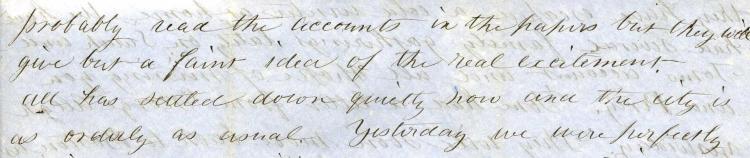 probably read the accounts in the papers but they will
give but a faint idea of the real excitement.
all has settled down quietly now and the city is
as orderly as usual. Yesterday we were perfectly